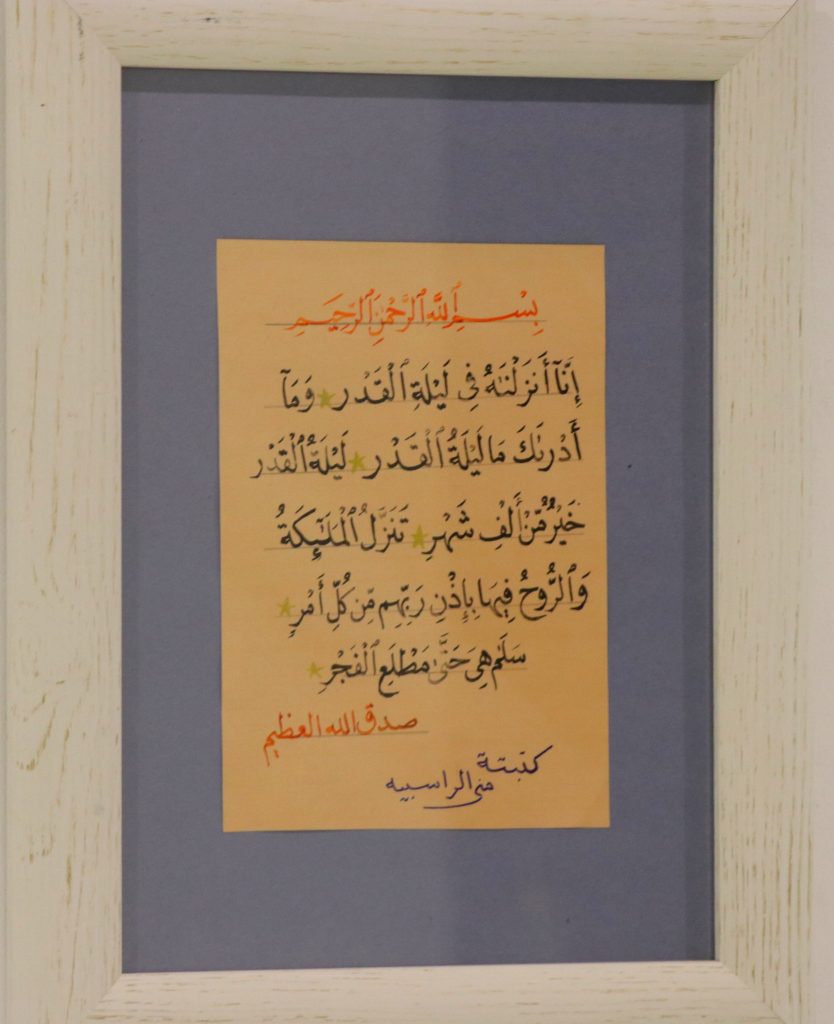 بِسْمِ ٱللَّهِ ٱلرَّحْمَٰنِ ٱلرَّحِيمِ
إِنَّآ أَنزَلْنَٰهُ فِى لَيْلَةِ ٱلْقَدْرِ ★ وَمَآ
أَدْرَىٰكَ مَا لَيْلَةُ ٱلْقَدْرِ ★ لَيْلَةُ ٱلْقَدْرِ
خَيْرٌ مِّنْ أَلْفِ شَهْرٍ ★ تَنَزَّلُ ٱلْمَلَٰٓئِكَةُ
وَٱلرُّوحُ فِيهَا بِإِذْنِ رَبِّهِم مِّن كُلِّ أَمْرٍ ★
سَلَٰمٌ هِىَ حَتَّىٰ مَطْلَعِ ٱلْفَجْرِ ★
صدق الله العظيم
كتبتة
منى الراسبيه